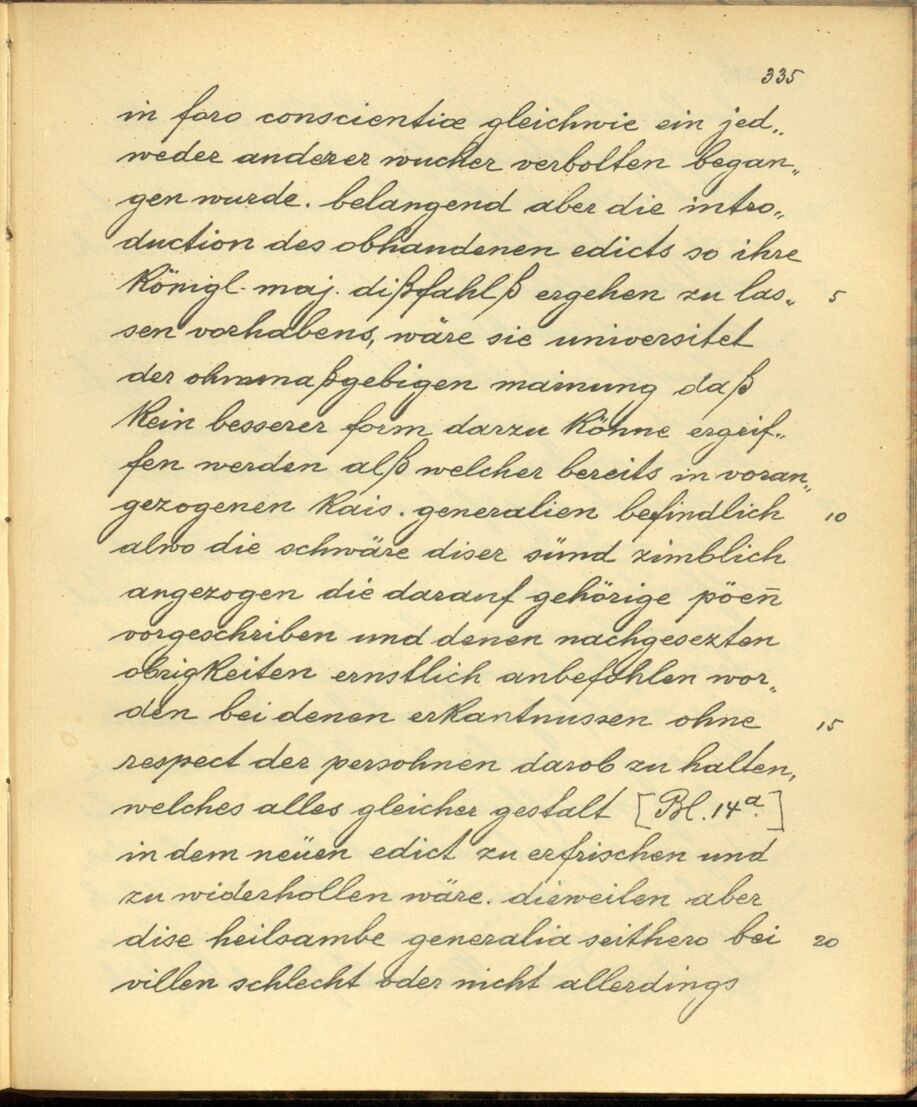 335
in foro conscientiæ gleichwie ein jed„
weder anderer wucher verbotten began„
gen wurde. belangend aber die intro„
duction des obhandenen edicts so ihre
Königl. maj. dißfahlß ergehen zu las„ 5
sen vorhabens, wäre sie universitet
der ohnmaßgebigen mainung daß
Kein besserer form darzu Könne ergeif„
fen werden alß welcher bereits in voran„
gezogenen Kais. generalien befindlich 10
alwo die schwäre diser sünd zimblich
angezogen die darauf gehörige pöen̄
vorgeschriben und denen nachgesezten
obrigKeiten ernstlich anbefohlen wor„
den bei denen erKantnussen ohne 15
respect der persohnen darob zu halten,
welches alles gleicher gestalt [Bl. 14ª.]
in dem neüen edict zu erfrischen und
zu widerhollen wäre. dieweilen aber
dise heilsambe generalia seithero bei 20
villen schlecht oder nicht allerdings